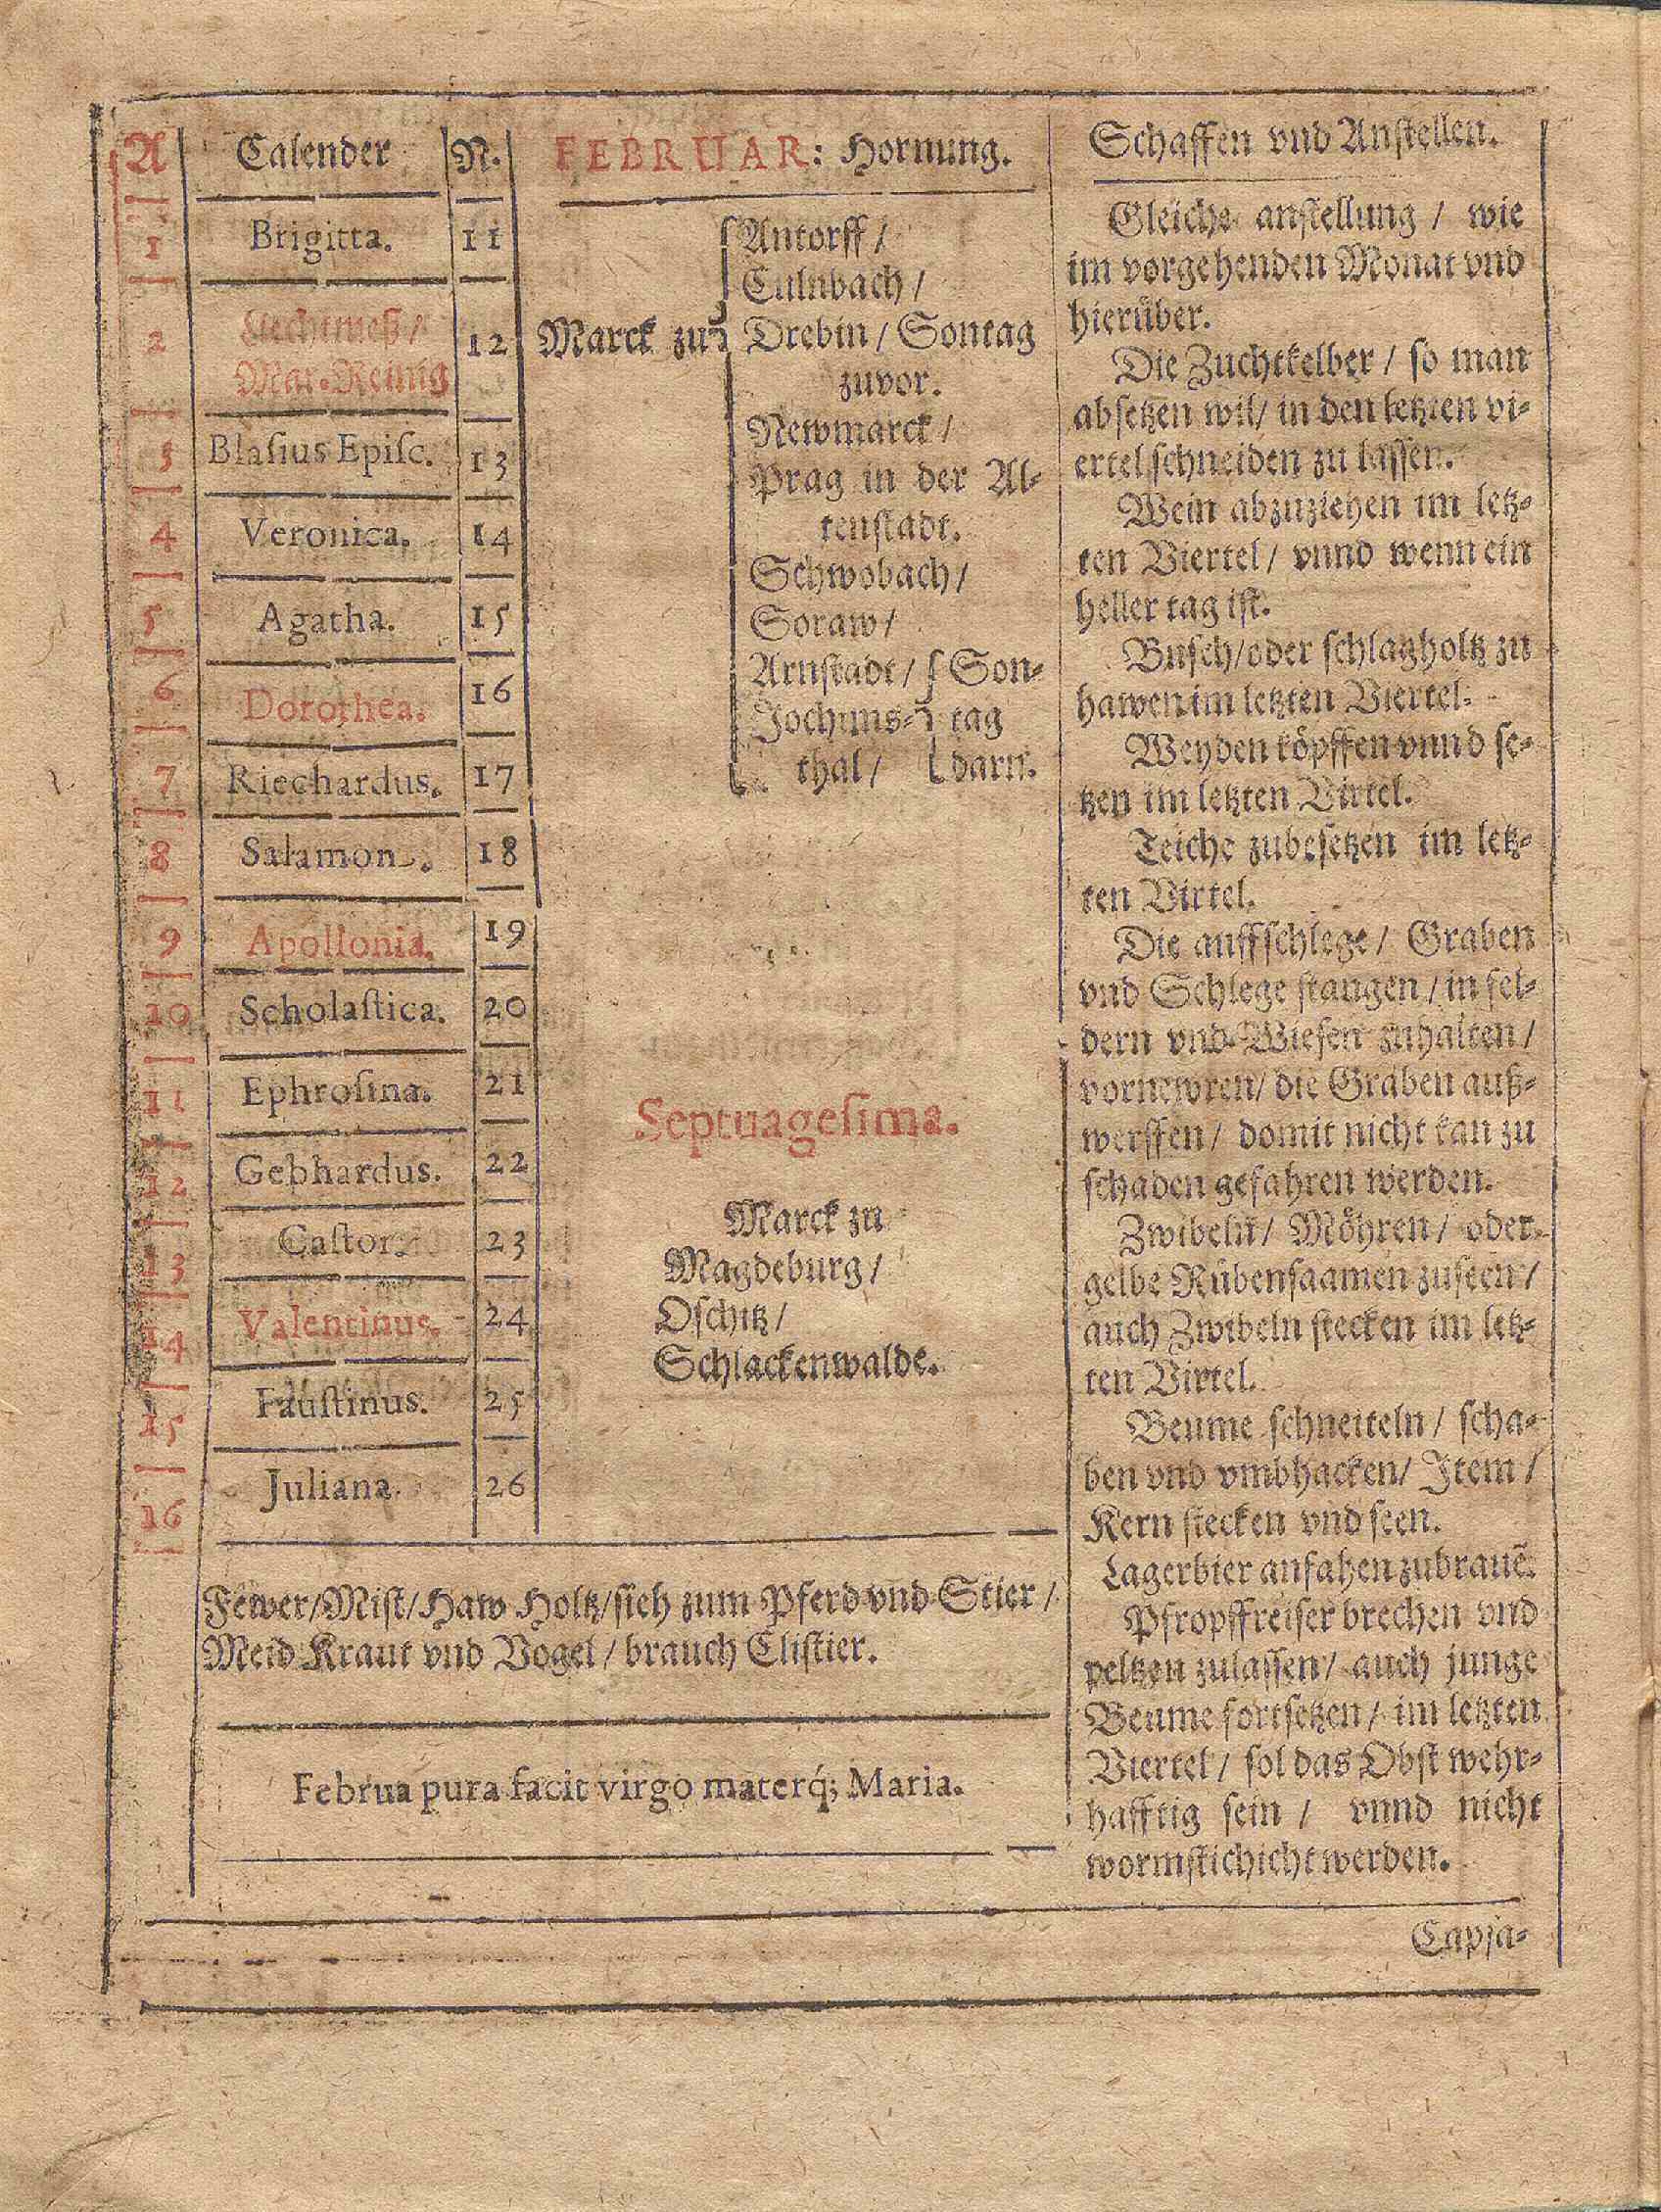 A Calender N. FEBRUAR: Hornung.
1 Brigitta. 11
2 Liechtmeß / 12
Mar. Reinig
3 Blaſius Epiſc. 13
4 Veronica. 14
5 Agatha. 15
6 Dorothea. 16
7 Riechardus. 17
8 Salamon. 18
9 Apollonia. 19
10 Scholaſtica. 20
11 Ephroſina. 21
12 Gebhardus. 22
13 Caſtor. 23
14 Valentinus. 24
15 Fauſtinus. 25
16 Juliana. 26
Marck zu
Antorff /
Culnbach /
Drebin / Sontag
zuvor.
Newmarck /
Prag in der Al⸗
tenſtadt.
Schwobach /
Soraw /
Arnſtadt / Son⸗
Jochims⸗ tag
thal / darn.
Septuageſima.
Marck zu
Magdeburg /
Oſchitz /
Schlackenwalde.
Fewer/Miſt/Haw Holtz/ſieh zum Pferd vnd Stier /
Meid Kraut vnd Vogel / brauch Cliſtier.
Februa pura facit virgo materq́; Maria.
Schaffen vnd Anſtellen.
Gleiche anſtellung / wie
im vorgehenden Monat vnd
hierüber.
Die Zuchtkelber / ſo man
abſetzen wil/ in den letzten vi⸗
ertel ſchneiden zu laſſen.
Wein abzuziehen im letz⸗
ten Viertel / vnnd wenn ein
heller tag iſt.
Buſch/oder ſchlagholtz zu
hawen im letzten Viertel.
Weyden köpffen vnnd ſe⸗
tzen im letzten Virtel.
Teiche zubeſetzen im letz⸗
ten Virtel.
Die auffſchlege / Graben
vnd Schlege ſtangen / in fel⸗
dern vnd Wieſen zuhalten /
vornewren/ die Graben auß⸗
werffen / domit nicht kan zu
ſchaden gefahren werden.
Zwibeln / Möhren / oder
gelbe Rübenſaamen zuſeen /
auch Zwibeln ſtecken im letz⸗
ten Virtel.
Beume ſchneiteln / ſcha⸗
ben vnd vmbhacken/ Item /
Kern ſtecken vnd ſeen.
Lagerbier anfahen zubrauẽ.
Pfropffreiſer brechen vnd
peltzen zulaſſen / auch junge
Beume fortſetzen / im letzten
Viertel / ſol das Obſt wehr⸗
hafftig ſein / vnnd nicht
wormſtichicht werden.
Capja⸗